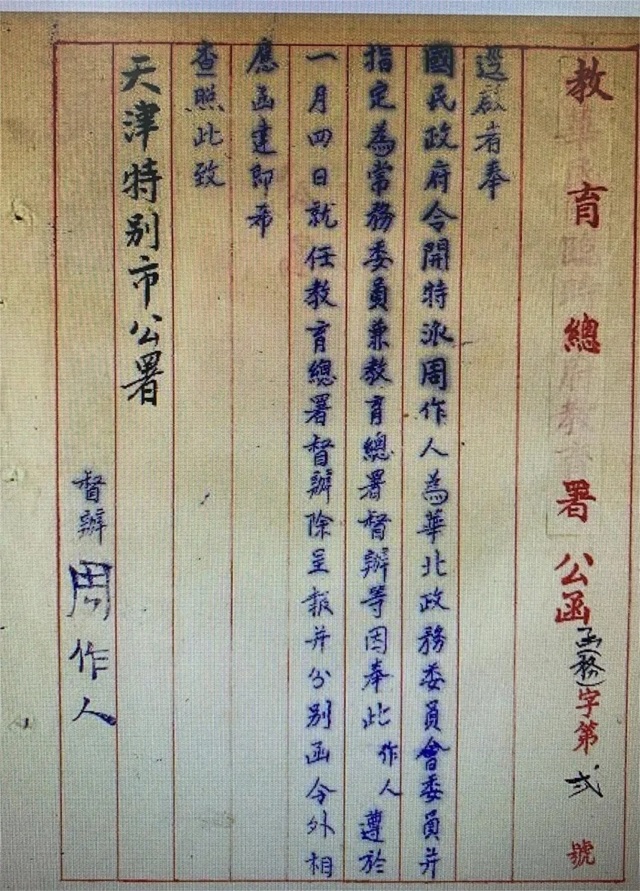 教育總署公函 函(務)字第 弍 號
逕啟者奉
國民政府令開特派周作人為華北政務委員會委員并
指定為常務委員兼教育總署督辦等因奉此作人遵於
一月四日就任教育總署督辦除呈報并分別函令外相
應函達即希
查照此致
天津特別市公署
督辦 周作人